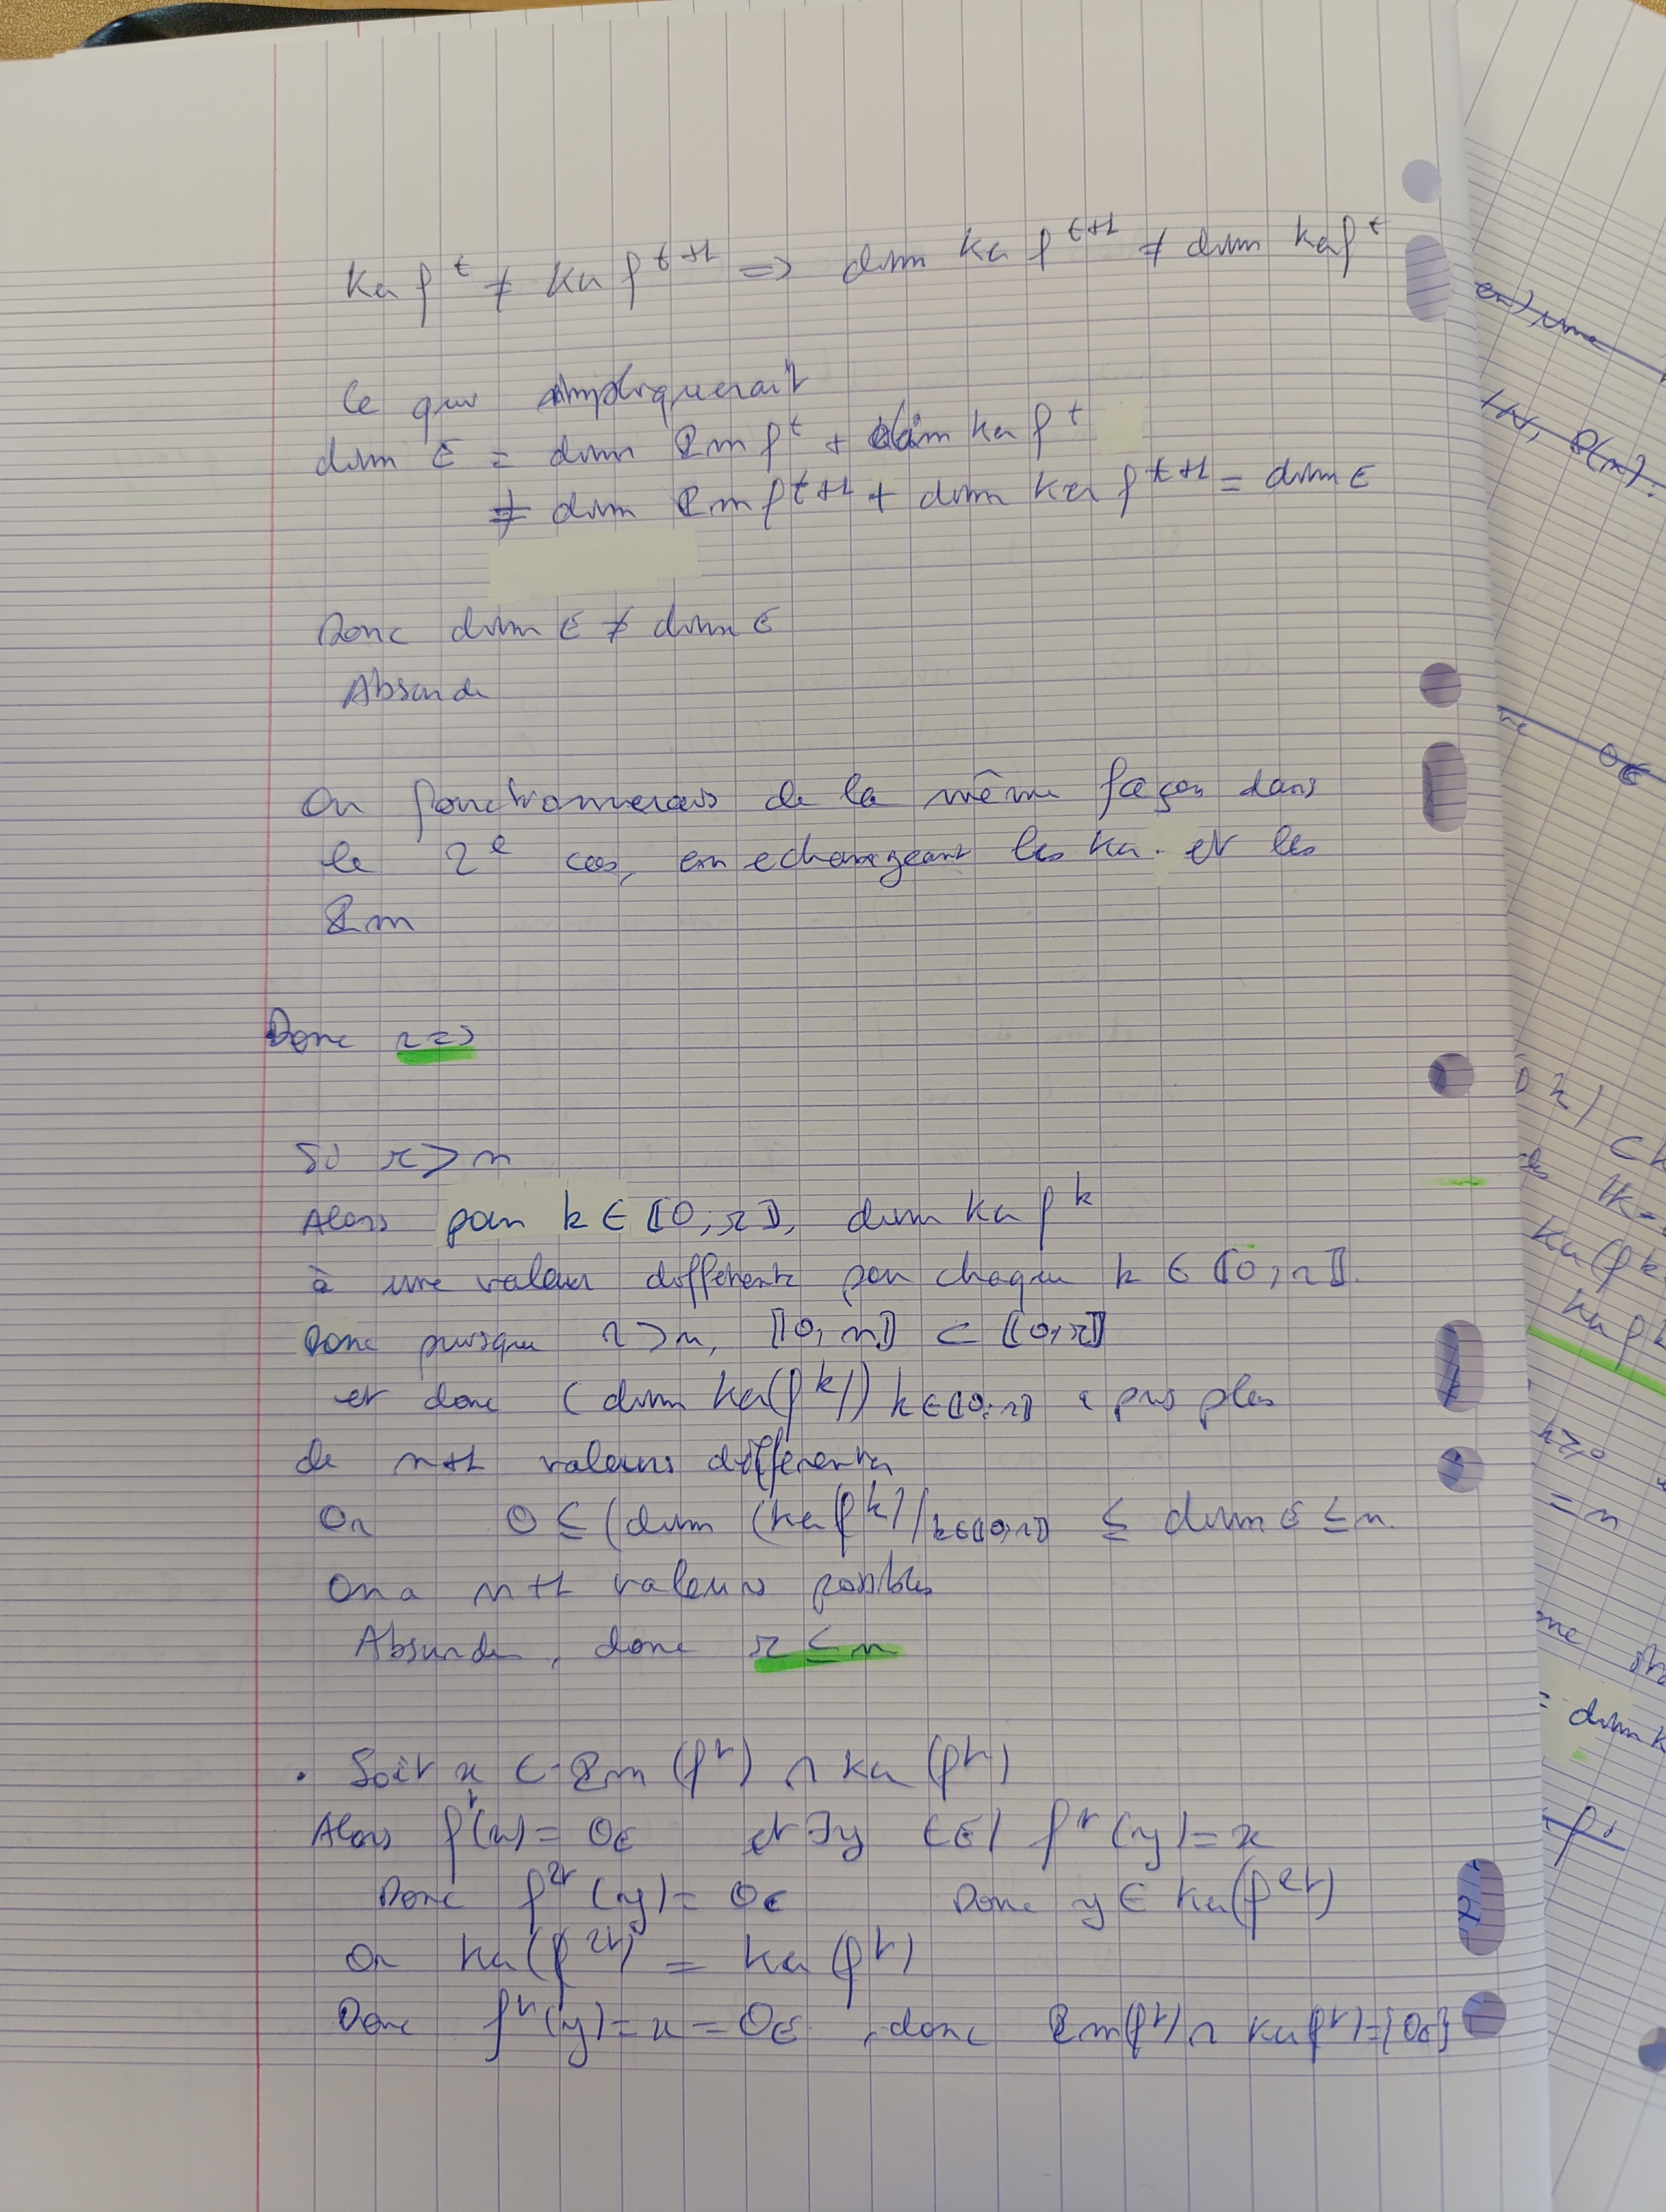 Ker f^t ≠ Ker f^{t+1} => dim Ker f^{t+1} ≠ dim Ker f^t
Ce qui impliquerait
dim E = dim Im f^t + dim Ker f^t
≠ dim Im f^{t+1} + dim Ker f^{t+1} = dim E
Donc dim E ≠ dim E
Absurde
On fonctionnerais de la même façon dans
le 2^e cas, en echangeant les Ker et les
Im
Donc r = s
Si r > n
Alors pour k ∈ ⟦0; r⟧, dim Ker f^k
à une valeur différente pour chaque k ∈ ⟦0, r⟧.
Donc puisque r > n, ⟦0, n⟧ ⊂ ⟦0, r⟧
et donc (dim Ker(f^k))_{k∈⟦0; r⟧} a plus
de n+1 valeurs différentes
Or 0 ≤ (dim (Ker f^k))_{k∈⟦0, r⟧} ≤ dim E ≤ n.
On a n+1 valeurs possibles
Absurde, donc r ≤ n
. Soit x ∈ Im (f^r) ∩ Ker (f^r)
Alors f^r(x) = 0_E et ∃y ∈ E / f^r (y) = x
Donc f^{2r} (y) = 0_E Donc y ∈ Ker(f^{2r})
Or Ker(f^{2r}) = Ker (f^r)
Donc f^r(y) = x = 0_E , donc Im(f^r) ∩ Ker f^r) = {0_E}
en), une
0_E
⊂ K
Ker(f^k
Ker f^k
= n
= dim K